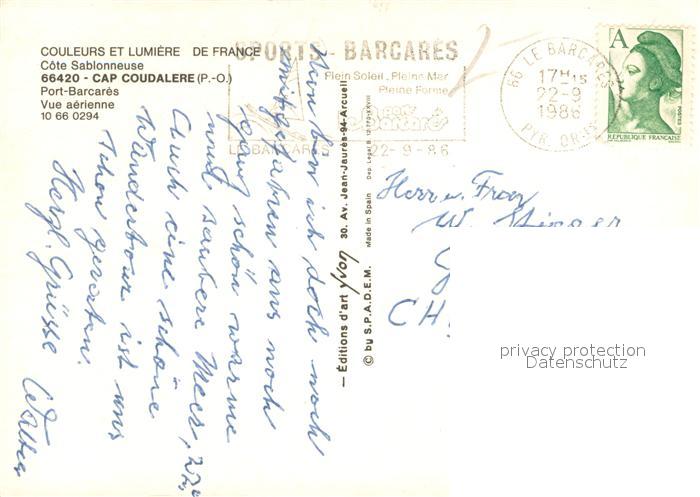 COULEURS ET LUMIÈRE DE FRANCE
Côte Sablonneuse
66420 - CAP COUDALERE (P.-O.)
Port-Barcarès
Vue aérienne
10 66 0294
SPORTS - BARCARÈS
Plein Soleil, Pleine Mer
Pleine Forme
LE BARCARÈS
22-9-86
66 LE BARCARES
17H15
22-9
1986
PYR. OR.
A
REPUBLIQUE FRANÇAISE
POSTES
Nun bin ich doch noch
mitgefahren ans noch
ganz schön warme
und saubere Meer,
Auch eine schöne
Wandertour ist uns
schon geraten.
Herzl. Grüsse Walter
— Editions d'art Yvon 30. Av. Jean-Jaurès-94-Arcueil
© by S.P.A.D.E.M. Made in Spain
Herr u. Frau
W.
CH.
privacy protection
Datenschutz